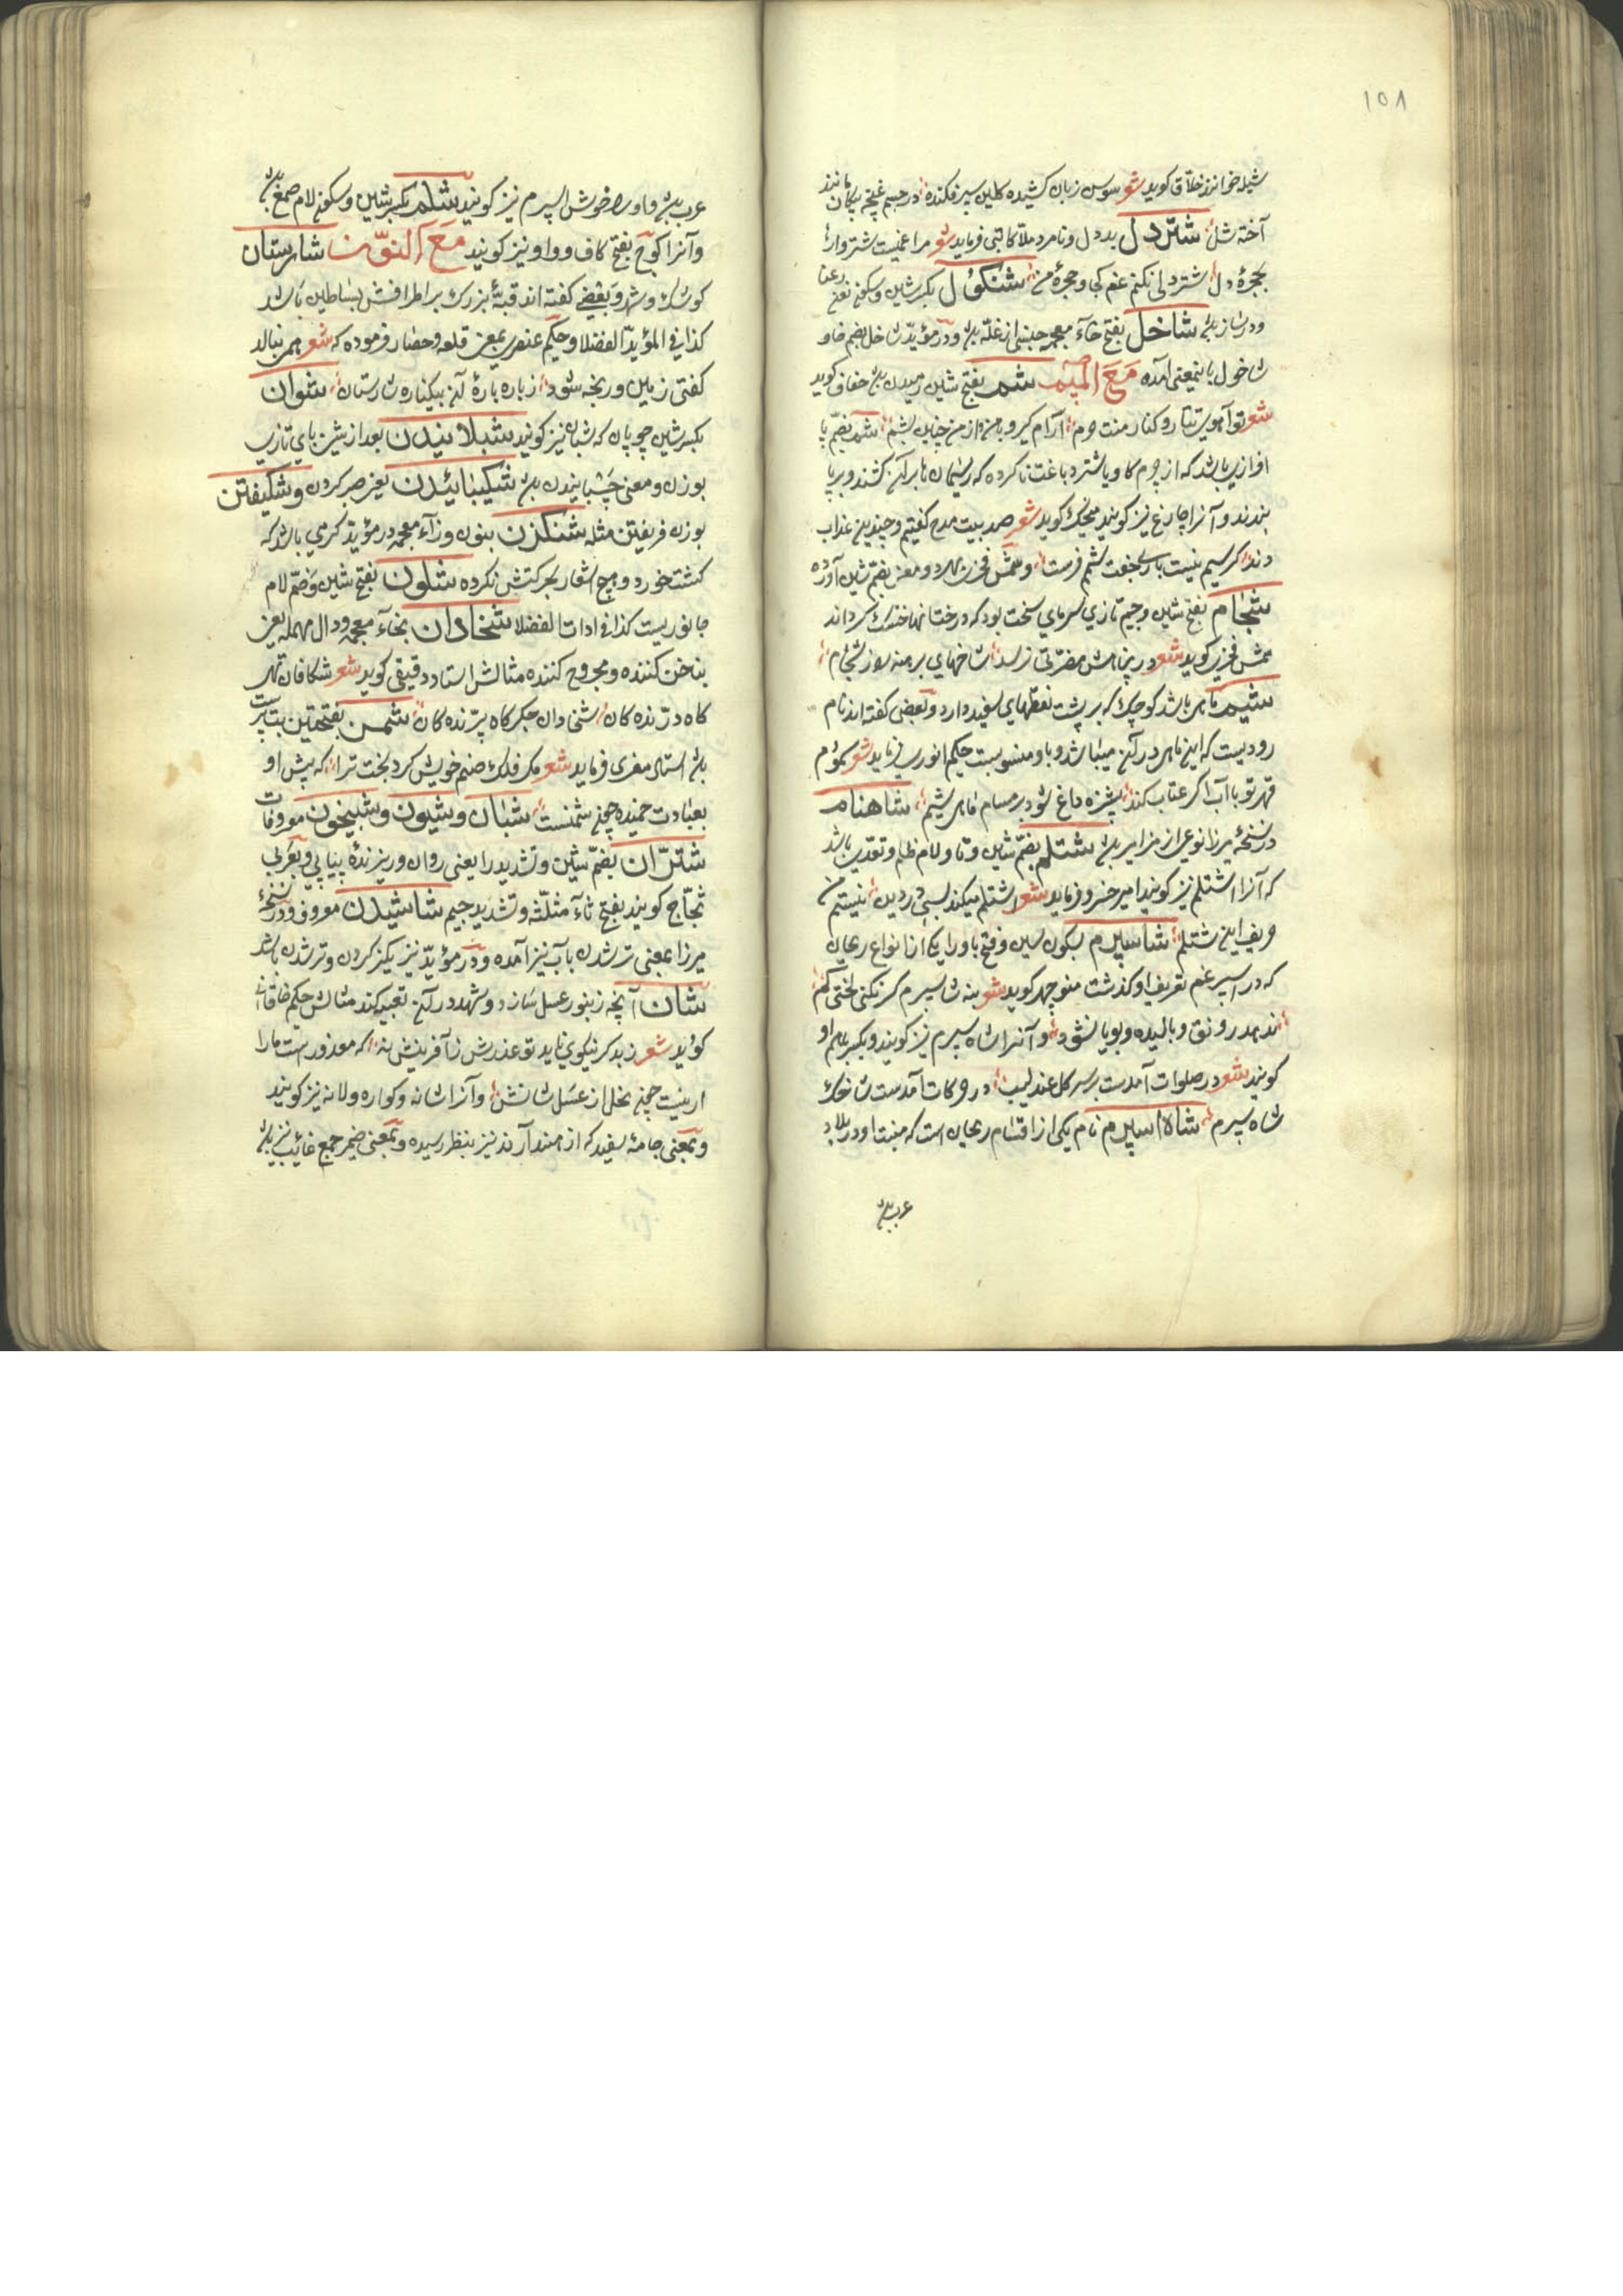 ١٥٨
شیله خوانند خلاق کوید شعر سوسن زبان کشیده کلبن سپر فکنده در جسم غنچه پیکان مانند
آخته شل شتردل بددل و نامرد ملا کاتبی فرماید شعر مرا غمیست شتروارها
بحجرهٔ دل شتردلی نکنم غم کجا و حجرهٔ من شنکول بکسر شین و سکون نون رعنا
ودرنسازند شاخل بفتح خاء معجمه جنسی از غله باشد ودر مؤید شاخل بضم خا و
شاخول باینمعنی آمده مَعَ المیم شم بفتح شین رمیدن باشد خفاف کوید
شعر توآهوییتا رو کنار منت حرم آرام کیر و بامن واز من چنین بشم شم بضم پا
افزاری باشد که از چرم کاو یا شتر دباغت ناکرده که ریسمان ها بر آن کشند و بر پا
بندند و آنرا چارغ نیز کویند منجیک کوید شعر صد بیت مدح کفتیم و چندین عذاب
دند کر سیم نیست باری جفت شم فرست و شمس فخری هر دو معنی بضم شین آورده
شجام بفتح شین و جیم تازی سرمای سخت بود که درختانها خشک کرداند
شمس فخری کوید شعر در پناهش مضرتی نرسد شاخهای برهنه روز شجام
شیم ماهی باشد کوچک که بر پشت نقطهای سفید دارد و بعضی کفته اند نام
رودیست که این ماهی در آن میباشد و باو منسوبست حکیم انوری فرماید شعر سموم
قهر تو با آب اکر عتاب کند پشزه داغ شود بر مسام ماهی شیم شاهنام
در نسخهٔ میرزا نوعی از مزامیر باشد شتلم بضم شین و تا و لام ظلم و تعدی باشد
که آنرا اشتلم نیز کویند امیر خسرو فرماید شعر اشتلم میکند بسی بر دین نیستم من
حریف این شتلم شاسپرم بسکون سین و فتح با و را یکی از انواع ریحان
که در اسپرغم تعریف او کذشت منوچهر کوید شعر بنه شاسپرم کر نکنی لختی کم
ندهد رونق و بالیده و بویا نشود و آنرا شاه سپرم نیز کویند و بکسر لام او
کویند شعر در صلوات آمدست بر سر کل عندلیب در حرکات آمدست شاخک
شاه سپرم شاه اسپرم نام یکی از اقسام ریحان است که منبت او در بلاد
عرب باشد
عرب باشد و او را خوش اسپرم نیز کویند شلم بکسر شین و سکون لام صمغ باشد
و آنرا کوج بفتح کاف و واو نیز کویند مَعَ النّون شارستان
کوشک و شهر و بعضی کفته اند قبهٔ بزرک بر اطرافش بساطین باشد
کذا فی المؤید الفضلا و حکیم عنصری بمعنی قلعه و حصار فرموده که شعر مر بنالد
کفتی زمین وریخه شود زباره بارهٔ آن بیکناره شارستان شوان
بکسر شین چوپان که شبان نیز کویند شبلانیدن بعد از شین بای تازی
بوزن و معنی چسبانیدن باشد شکیبائیدن یعنی صبر کردن و شکیفتن
بوزن فریفتن مثله شنکزن بنون و زاء معجمه در مؤید کرمی باشد که
کشت خورد و هیچ اشعار بحرکتش نکرده شلون بفتح شین و ضم لام
جانوریست کذا فی ادات الفضلا شخادان بخاء معجمه و دال مهمله یعنی
بناخن کننده و مجروح کننده مثالش استاد دقیقی کوید شعر شکافان تهی
کاه درنده کان شخادان جکرکاه پرنده کان شمن بفتحتین بت پرست
باشد استاد معزی فرماید شعر مکر فلک صنم خویش کرد بخت ترا که پیش او
بعبادت خمیده چون شمنست شبان و شیون و شبیخون معروفات
شتران بضم شین و تشدید را یعنی روان و ریزندهٔ پیاپی و بعربی
ثجاج کویند بفتح ثاء مثلثه و تشدید جیم شاشیدن معروف و در نسخهٔ
میرزا بمعنی تر شدن بآب نیز آمده و در مؤید نیز یکیز کردن و تر شدن باشد
شان آنچه زنبور عسل سازد و شهد در آن تعبیه کند مثالش حکیم خاقانی
کوید شعر ز بد کر نیکویی ناید تو عذرش ز آفرینش نه که معذور است مارا
ار نیست چون نحل از عسل شانش و آنرا شانه و کواره و لانه نیز کویند
و بمعنی جامهٔ سفید که از هند آرند نیز بنظر رسیده و بمعنی ضمیر جمع غائب نیز باشد